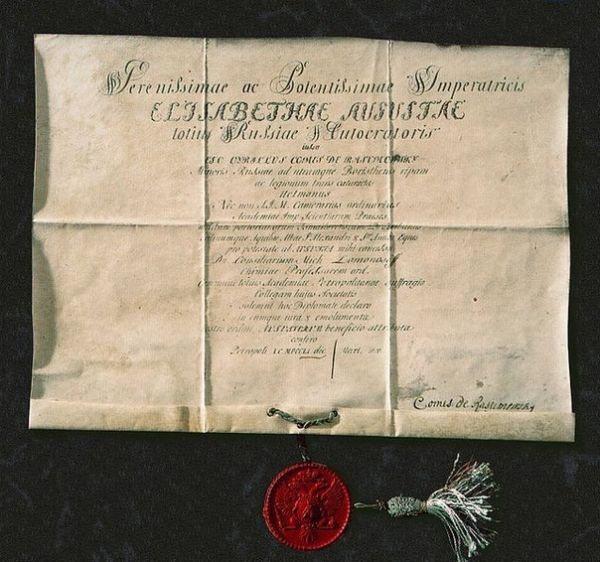 Serenissimae ac Potentissimae Imperatricis
ELISABETHAE AUGUSTAE
totius Russiae Autocratoris
iussu
CYRILLUS COMES DE RASUMOWSKY
Minoris Russiae ad utramque Borysthenis ripam
ac legionum trans
Hetmannus
Nec non S.I.M. Camerarius ordinarius
Academiae Imp. Scientiarum Praeses
Aquilae Albae S. Alexandri & Stae Annae Eques
pro potestate ab AUGUSTA mihi concessa
Dn. Consiliarium Mich. Lomonosoff
Chimiae Professorem ord.
Communi totius Academiae Petropolitanae suffragio
Collegam huius Societatis
solemni hoc Diplomate declaro
eumque iura & emolumenta
ordini, AUGUSTORUM beneficio attributa
confero
Petropoli
Comes de Rasumowsky